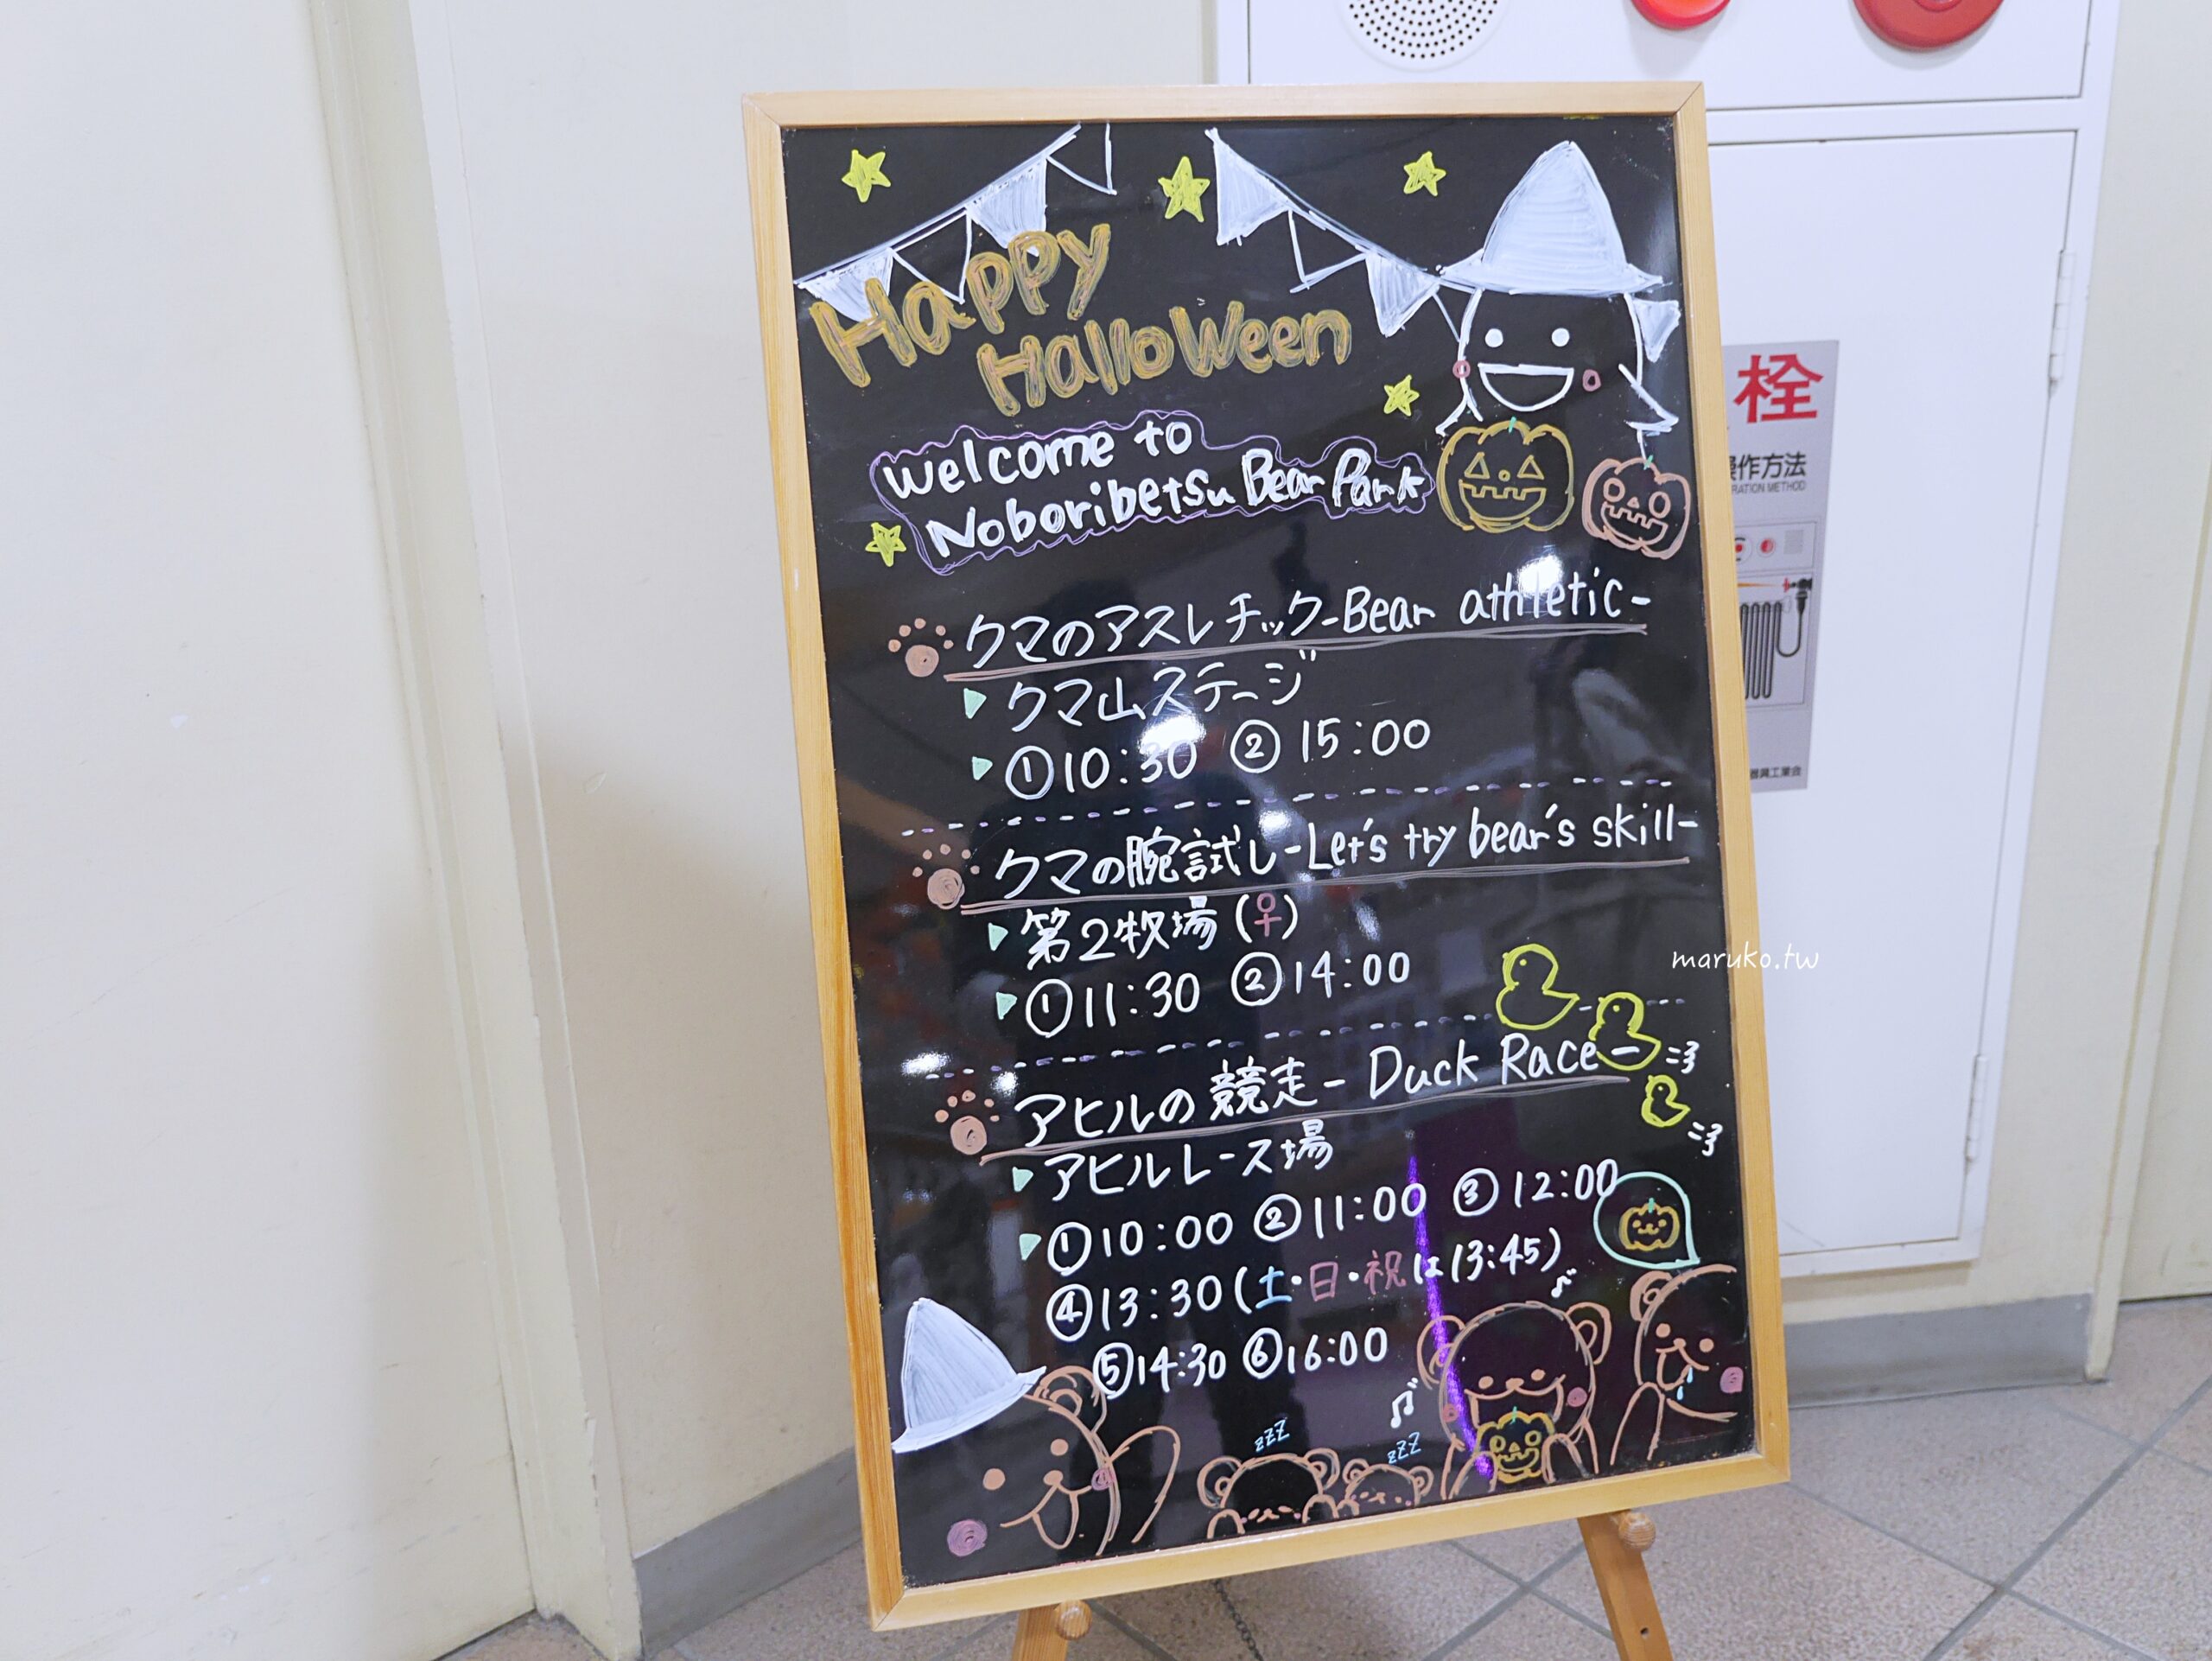 Happy
Halloween
Welcome to
Noboribetsu Bear Park
クマのアスレチック-Bear athletic-
クマ山ステージ
①10:30 ②15:00
クマの腕試し-Let's try bear's skill-
第2牧場(♀)
①11:30 ②14:00
アヒルの競走-Duck Race-
アヒルレース場
①10:00 ②11:00 ③12:00
④13:30(土・日・祝は13:45)
⑤14:30 ⑥16:00
zzz
zzz
栓
操作方法
RATION METHOD
器具工業会
maruko.tw